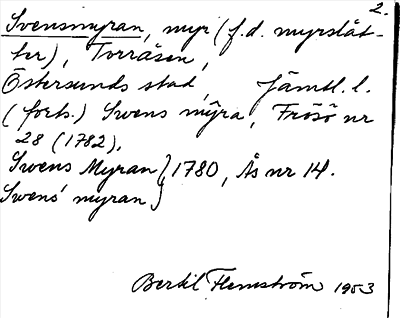 2.
Svensmyran, myr (f.d. myrslåt-
ter), Torråsen,
Östersunds stad, Jämtl. l.
(forts.) Swens mÿra, Frösö nr
28 (1782).
Swens Myran } 1780, Ås nr 14.
Swens' myran }
Bertil Flemström 1953